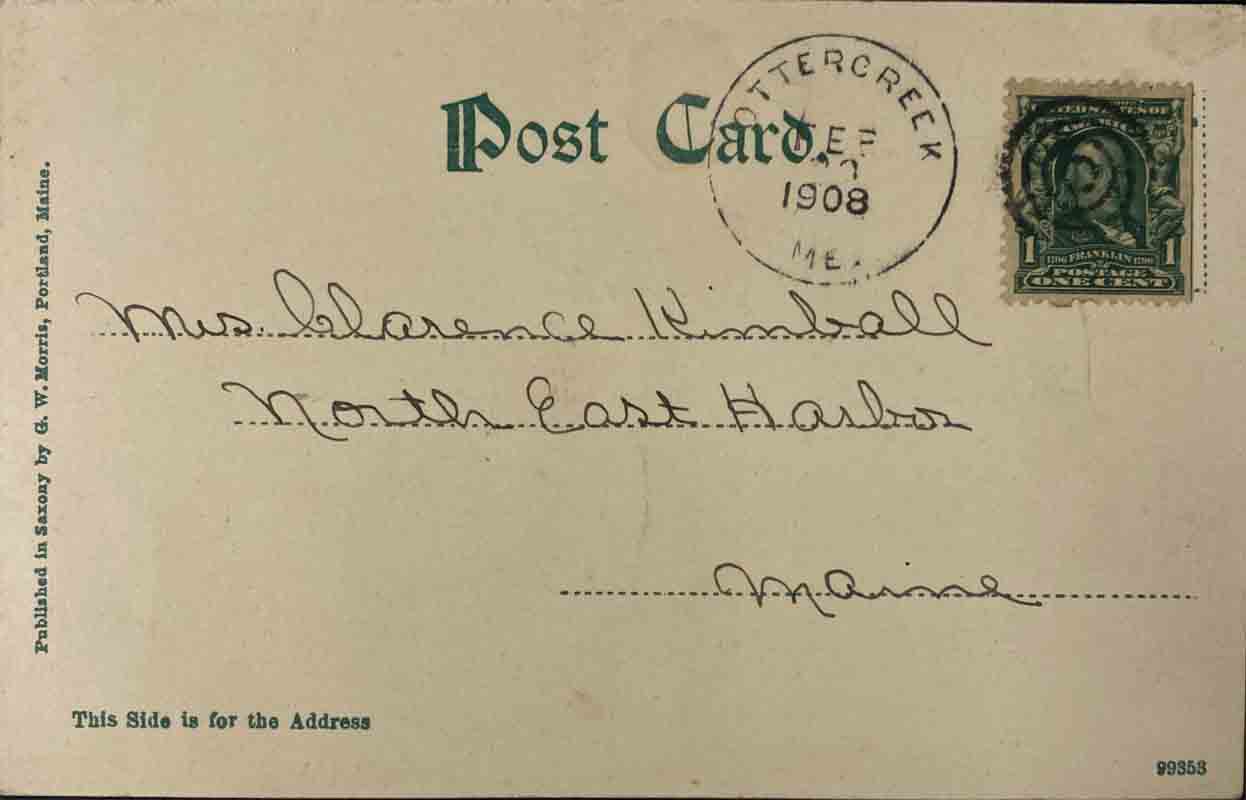 Post Card.
OTTERCREEK
1908
ME.
UNITED STATES OF
1
1
1706 FRANKLIN 1790
POSTAGE
ONE CENT
Mrs. Clarence Kimball
North East Harbor
Maine
Published in Saxony by G. W. Morris, Portland, Maine.
This Side is for the Address
99353